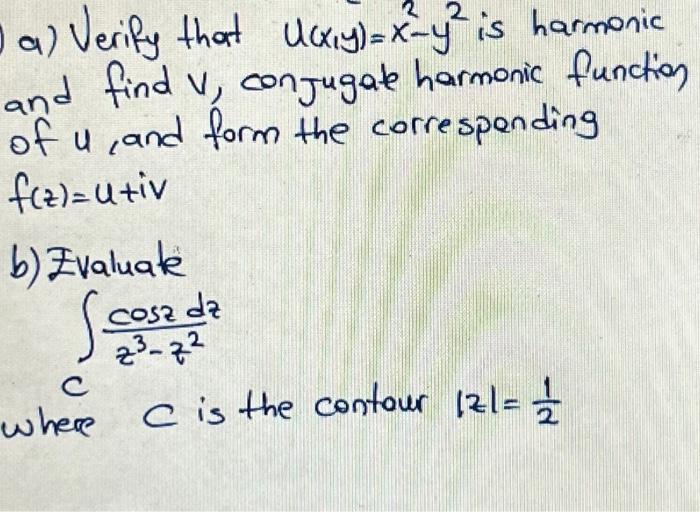 ) a) Verify that u(x,y)=x²-y² is harmonic
and find v, conjugate harmonic function
of u, and form the corresponding
f(z)=u+iv
b) Evaluate
∫ cosz dz / z³-z²
C
where C is the contour |z|= 1/2